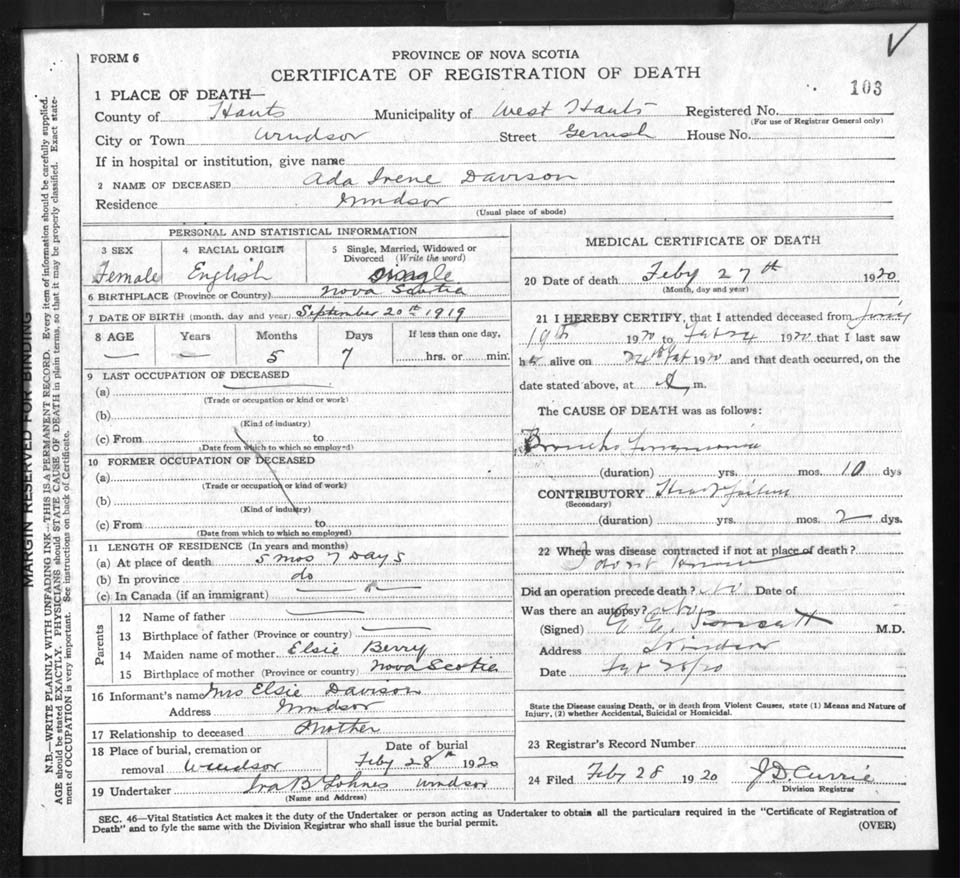 FORM 6
PROVINCE OF NOVA SCOTIA
CERTIFICATE OF REGISTRATION OF DEATH
103
1 PLACE OF DEATH—
County of Hants Municipality of West Hants Registered No.
(For use of Registrar General only)
City or Town Windsor Street Gerrish House No.
If in hospital or institution, give name
2 NAME OF DECEASED Ada Irene Davison
Residence Windsor
(Usual place of abode)
PERSONAL AND STATISTICAL INFORMATION
3 SEX 4 RACIAL ORIGIN 5 Single, Married, Widowed or Divorced (Write the word)
Female English Single
6 BIRTHPLACE (Province or Country) Nova Scotia
7 DATE OF BIRTH (month, day and year) September 20th 1919
8 AGE Years Months Days If less than one day,
— — 5 7 hrs. or min.
9 LAST OCCUPATION OF DECEASED
(a)
(Trade or occupation or kind or work)
(b)
(Kind of industry)
(c) From to
(Date from which to which so employed)
10 FORMER OCCUPATION OF DECEASED
(a)
(Trade or occupation or kind of work)
(b)
(Kind of industry)
(c) From to
(Date from which to which so employed)
11 LENGTH OF RESIDENCE (In years and months)
(a) At place of death 5 mos 7 Days
(b) In province do
(c) In Canada (if an immigrant)
Parents
12 Name of father
13 Birthplace of father (Province or country)
14 Maiden name of mother Elsie Berry
15 Birthplace of mother (Province or country) Nova Scotia
16 Informant's name Mrs Elsie Davison
Address Windsor
17 Relationship to deceased Mother
18 Place of burial, cremation or removal Windsor
Date of burial Feby 28th 1920
19 Undertaker Ira B Lohnes Windsor
(Name and Address)
MEDICAL CERTIFICATE OF DEATH
20 Date of death Feby 27th 1920
(Month, day and year)
21 I HEREBY CERTIFY, that I attended deceased from
19th 1920 to 1920 that I last saw
h alive on 24th 1920 and that death occurred, on the
date stated above, at m.
The CAUSE OF DEATH was as follows:
Broncho Pneumonia
(duration) yrs. mos. 10 dys
CONTRIBUTORY Heart failure
(Secondary)
(duration) yrs. mos. 2 dys.
22 Where was disease contracted if not at place of death?
I dont know
Did an operation precede death? No Date of
Was there an autopsy? No
(Signed) M.D.
Address Windsor
Date 28/20
State the Disease causing Death, or in death from Violent Causes, state (1) Means and Nature of
Injury, (2) whether Accidental, Suicidal or Homicidal.
23 Registrar's Record Number
24 Filed Feby 28 1920 J.D. Currie
Division Registrar
SEC. 46—Vital Statistics Act makes it the duty of the Undertaker or person acting as Undertaker to obtain all the particulars required in the "Certificate of Registration of
Death" and to fyle the same with the Division Registrar who shall issue the burial permit.
(OVER)
MARGIN RESERVED FOR BINDING
N.B.—WRITE PLAINLY WITH UNFADING INK—THIS IS A PERMANENT RECORD. Every item of information should be carefully supplied.
AGE should be stated EXACTLY. PHYSICIANS should STATE CAUSE OF DEATH in plain terms, so that it may be properly classified. Exact state-
ment of OCCUPATION is very important. See instructions on back of Certificate.